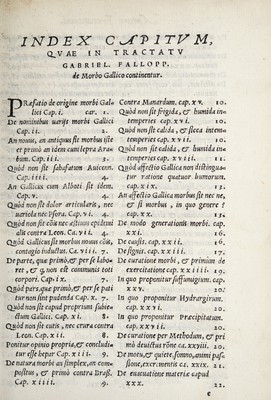 INDEX CAPITVM,
QVAE IN TRACTATV
GABRIEL. FALLOPP.
de Morbo Gallico continentur.
Præfatio de origine morbi Gallici Cap. i. car. 1.
De nominibus morbi Gallici
Cap. ii. 2.
An nouus, an antiquus sit morbus iste
et primò an idem cum lepra Arabum.
Cap. iii. 3.
Quòd non sit sahafatum Auicen.
Cap. iiii. 3.
An Gallicus cum Alboti sit idem.
Cap. v. 4.
Quòd non sit dolor articularis, nec
uariola nec Cap. vi. 4.
Quòd non sit
alit contra Leon. Ca. vii. 4.
Quòd Gallicus sit morbus nouus
contagio inductus. Ca. viii. 7.
De parte, quæ primò, & per se laboret,
& q. non est communis toti
corpori. Cap. ix. 7.
Quòd pars, quæ primò, & per se patitur
non sint pudenda Cap. x. 7.
Quòd non sit caput proprium subiectum
Gallici. Cap. xi. 8.
Quòd non sit cutis, nec crura contra
Leon. Cap. xii. 8.
Ponitur opinio propria, & concluditur
esse hepar Cap. xiii. 9.
De natura morbi an simplex, an compositus,
& primò contra Brass.
Cap. xiiii. 9.
Contra Manardum. cap. xv. 10.
Quòd non sit frigida, & humida intemperies
cap. xvi. 10.
Quòd non sit calida, & sicca intemperies
cap. xvii. 10.
Quòd non sit calida, & humida intemperies
cap. xviii. 11.
Quòd affectio Gallica non distinguatur
ratione quatuor humorum.
cap. xix. 13.
An affectio Gallica morbus sit nec ne,
& si morbus, in quo genere?
cap. xx. 13.
De modo generationis morbi. cap.
xxi. 16.
De causis. cap. xxii. 16.
De signis. cap. xxiii. 17.
De curatione morbi, & primùm de
exercitatione cap. xxiiii. 19.
In quo proponitur suffumigium. cap.
xxv. 20.
In quo proponitur Hydrargirum.
cap. xxvi. 20.
In quo proponitur Præcipitatum.
cap. xxvii. 20.
De curatione per Methodum, & primò
de uictus rõne ca. xxviii. 20.
De motu, & quiete, somno, animi passione,
excrementis ca. xxix. 21.
De euacuatione materiæ caput
xxx. 22.
c